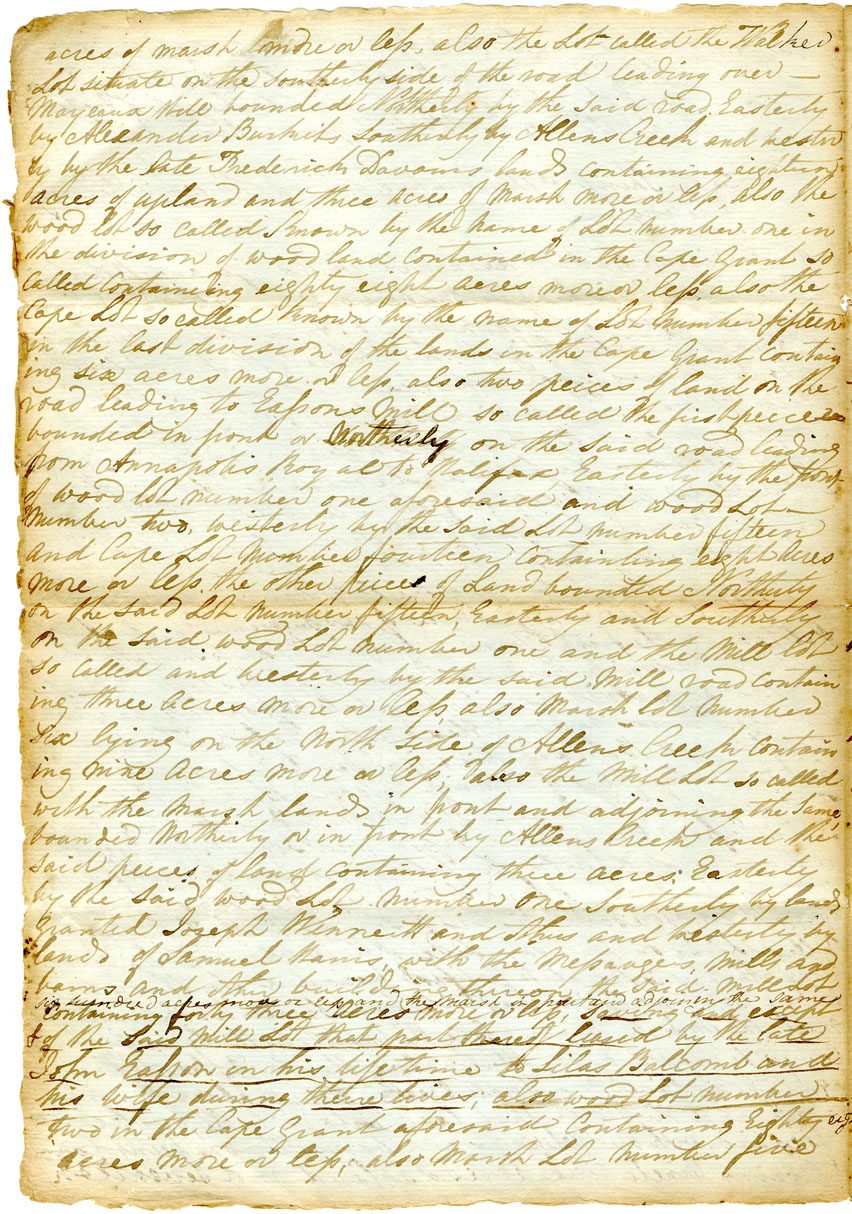 acres of marsh more or less, also the Lot called the Walker
Lot situate on the southerly side of the road leading over —
Hill bounded Northerly by the said road Easterly
by Alexander Burkits Southerly by Allens Creek and wester
ly by the late Frederick Davours lands containing eighteen
acres of upland and three acres of marsh more or less, also the
wood lot so called known by the name of Lot number one in
the division of wood land contained in the Cape Grant so
called containing eighty eight acres more or less, also the
Cape Lot so called known by the name of Lot number fifteen
in the last division of the lands in the Cape Grant contain
ing six acres more or less, also two peices of land on the
road leading to Eassons Mill so called the first peice
bounded in front or Northerly on the said road leading
from Annapolis Royal to Halifax Easterly by the front
of wood lot number one aforesaid and wood Lot —
number two, westerly by the said Lot number fifteen
and Cape Lot number fourteen containing eight acres
more or less, the other peice of Land bounded Northerly
on the said Lot number fifteen, Easterly and Southerly
on the said wood Lot number one and the Mill lot
so called and westerly by the said Mill road contain
ing three acres more or less, also Marsh lot number
six lying on the North side of Allens Creek contain
ing nine acres more or less, also the Mill Lot so called
with the Marsh lands in front and adjoining the same,
bounded Northerly or in front by Allens Creek and the
said peices of land containing three acres, Easterly
by the said wood Lot number one Southerly by lands
granted Joseph Winniett and others and westerly by
lands of Samuel Harris, with the Messuages, mills, and
barns and other buildings thereon the said mill Lot
six hundred acres more or less and the marsh in front and adjoining the same
containing forty three acres more or less, saving and except
& of the said mill Lot that part thereof leased by the late
John Easson in his life time to Silas Balcomb and
his wife during there lives, also wood Lot number
two in the Cape Grant aforesaid containing Eighty eight
acres more or less, also Marsh Lot number five